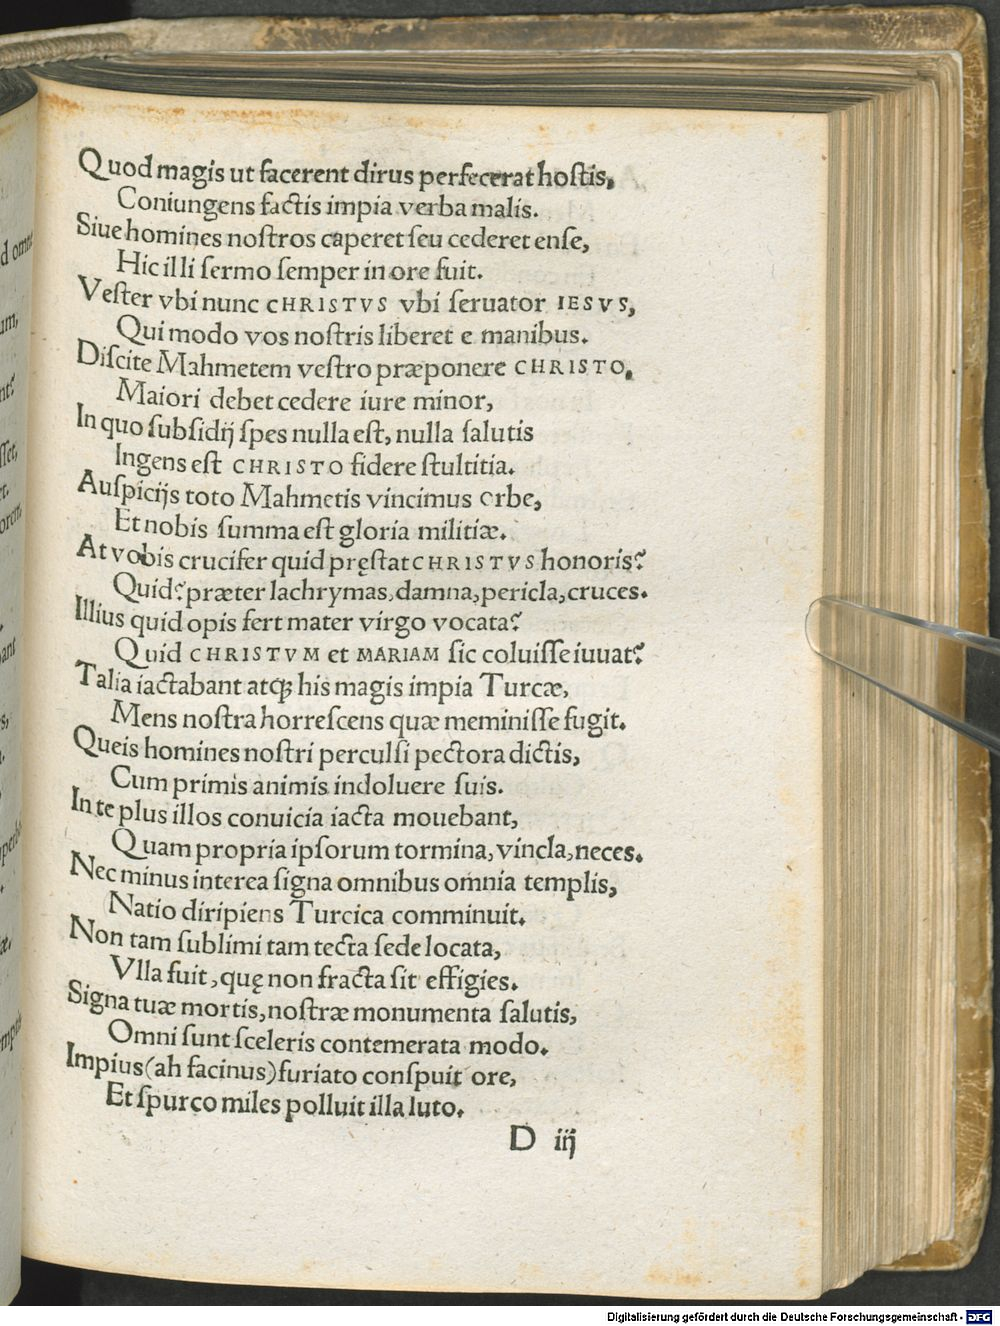 Quod magis ut facerent dirus perfecerat hostis,
Coniungens factis impia verba malis.
Siue homines nostros caperet seu cederet ense,
Hic illi sermo semper in ore fuit.
Vester vbi nunc CHRISTVS vbi seruator IESVS,
Qui modo vos nostris liberet e manibus.
Discite Mahmetem vestro præponere CHRISTO,
Maiori debet cedere iure minor,
In quo subsidij spes nulla est, nulla salutis
Ingens est CHRISTO fidere stultitia.
Auspicijs toto Mahmetis vincimus orbe,
Et nobis summa est gloria militiæ.
At vobis crucifer quid pręstat CHRISTVS honoris?
Quid? præter lachrymas, damna, pericla, cruces.
Illius quid opis fert mater virgo vocata?
Quid CHRISTVM et MARIAM sic coluisse iuuat?
Talia iactabant atq; his magis impia Turcæ,
Mens nostra horrescens quæ meminisse fugit.
Queis homines nostri perculsi pectora dictis,
Cum primis animis indoluere suis.
In te plus illos conuicia iacta mouebant,
Quam propria ipsorum tormina, vincla, neces.
Nec minus interea signa omnibus omnia templis,
Natio diripiens Turcica comminuit.
Non tam sublimi tam tecta sede locata,
Vlla fuit, quę non fracta sit effigies.
Signa tuæ mortis, nostræ monumenta salutis,
Omni sunt sceleris contemerata modo.
Impius (ah facinus) furiato conspuit ore,
Et spurco miles polluit illa luto.
D iij
Digitalisierung gefördert durch die Deutsche Forschungsgemeinschaft - DFG